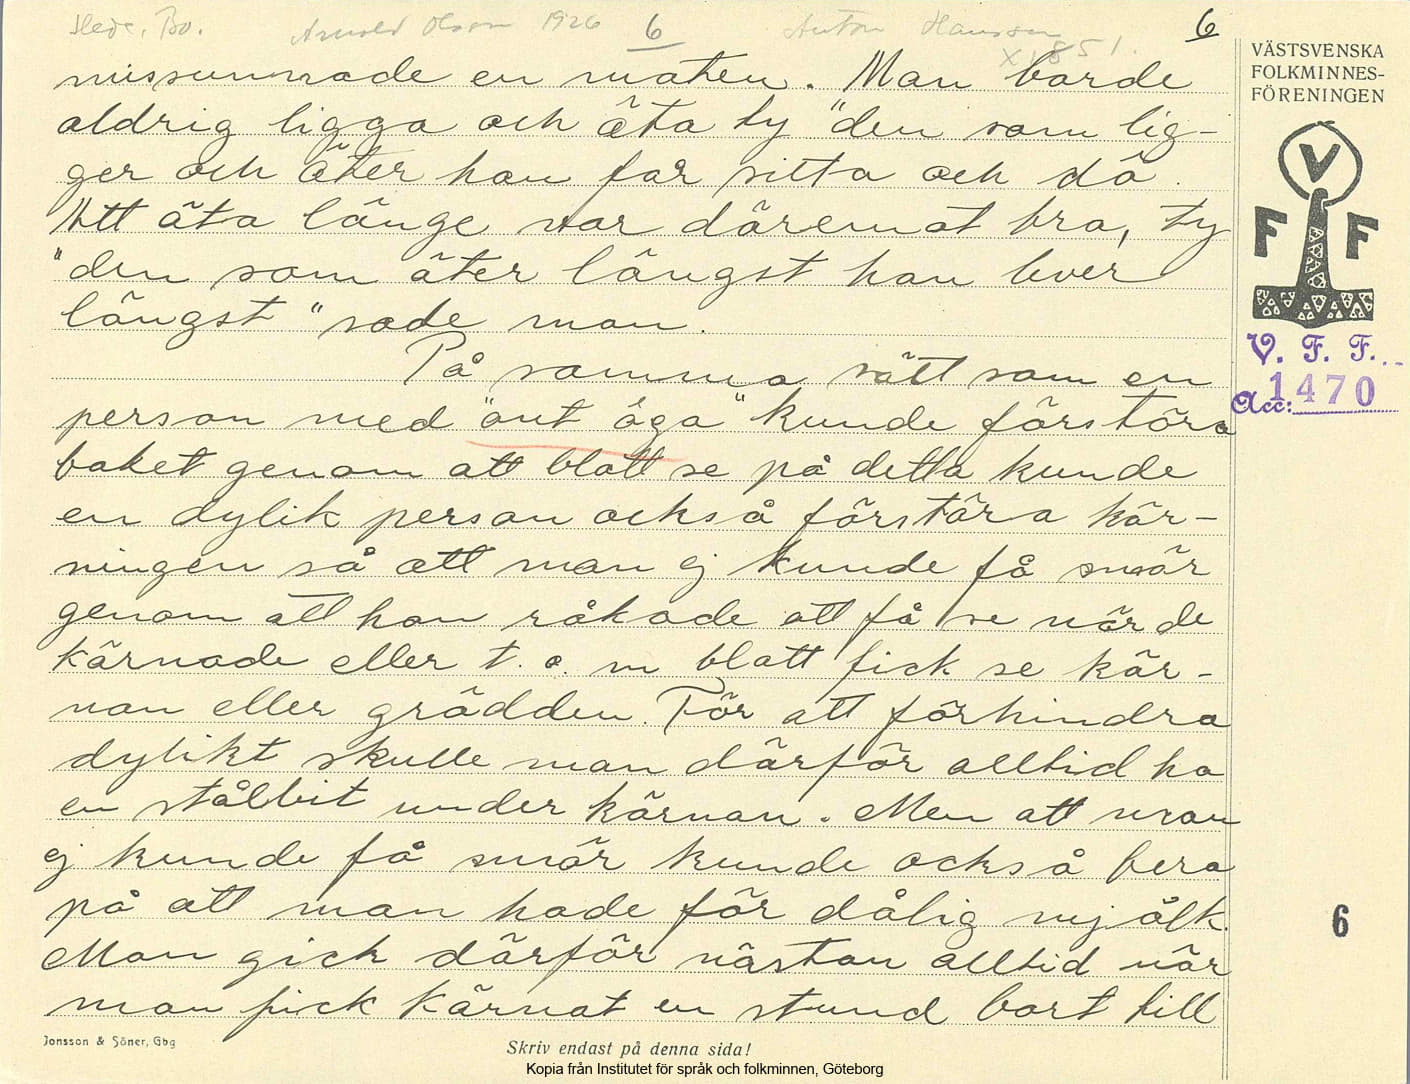 Hede, Bo. Arnold Olsson 1926 6 Anton Hansson 6
X 1851.
VÄSTSVENSKA
FOLKMINNES-
FÖRENINGEN
V
F F
V. F. F.
Acc: 1470
missunnade en maten. Man borde
aldrig ligga och äta ty "den som lig-
ger och äter han får sitta och dö.
Att äta länge var däremot bra, ty
"den som äter längst han lever
längst" sade man.
På samma sätt som en
person med "ont öga" kunde förstöra
baket genom att blott se på detta kunde
en dylik person också förstöra kär-
ningen så att man ej kunde få smör
genom att han råkade att få se när de
kärnade eller t. o. m blott fick se kär-
nan eller grädden. För att förhindra
dylikt skulle man därför alltid ha
en stålbit under kärnan. Men att man
ej kunde få smör kunde också bero
på att man hade för dålig mjölk.
Man gick därför nästan alltid när
man fick kärnat en stund bort till
6
Jonsson & Söner, Gbg
Skriv endast på denna sida!
Kopia från Institutet för språk och folkminnen, Göteborg